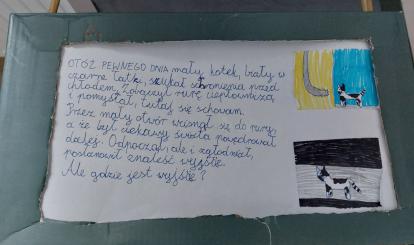 OTÓŻ PEWNEGO DNIA mały kotek, biały w
czarne łatki, szukał schronienia przed
chłodem. Zobaczył rurę ciepłowniczą,
i pomyślał, tutaj się schowam.
Przez mały otwór wcisnął się do rury,
a że był ciekawy świata powędrował
dalej. Odpoczął, ale i zgłodniał,
postanowił znaleść wyjście.
Ale gdzie jest wyjście?